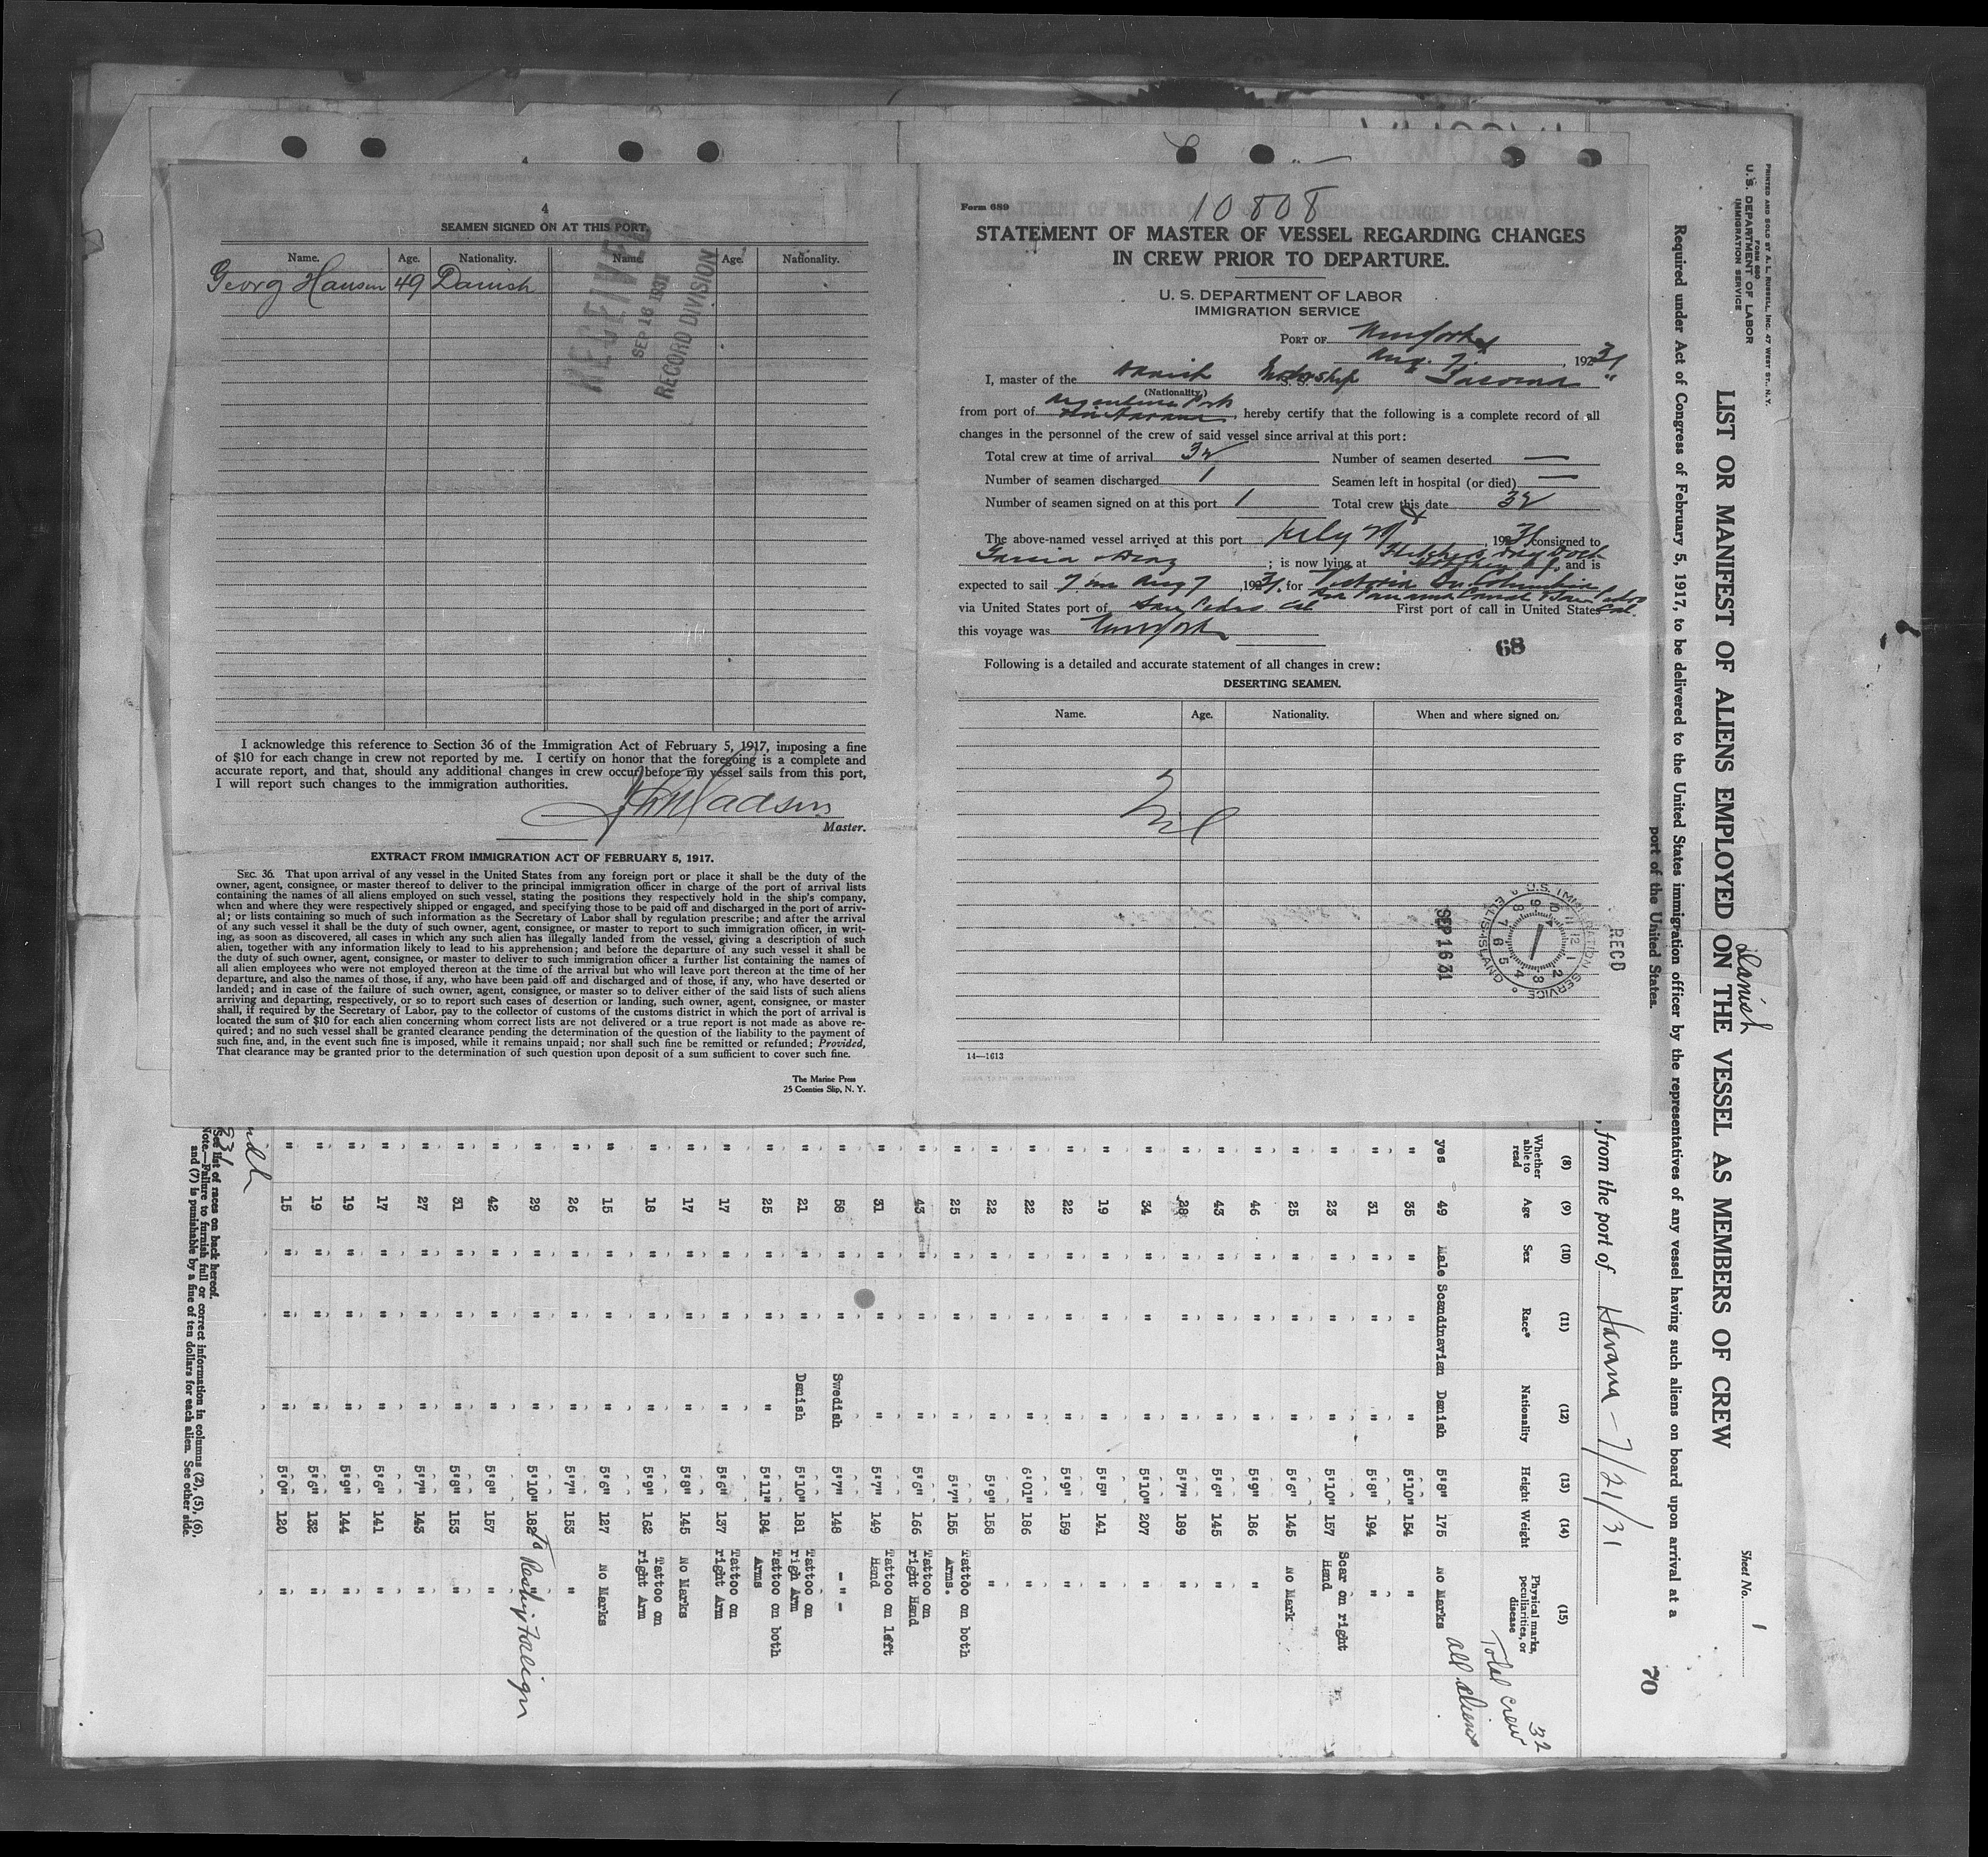 4
SEAMEN SIGNED ON AT THIS PORT.
Name. Age. Nationality. Name. Age. Nationality.
Georg Hansen 49 Danish
RECEIVED
SEP 16 1931
RECORD DIVISION
I acknowledge this reference to Section 36 of the Immigration Act of February 5, 1917, imposing a fine
of $10 for each change in crew not reported by me. I certify on honor that the foregoing is a complete and
accurate report, and that, should any additional changes in crew occur before my vessel sails from this port,
I will report such changes to the immigration authorities.
Master.
EXTRACT FROM IMMIGRATION ACT OF FEBRUARY 5, 1917.
SEC. 36. That upon arrival of any vessel in the United States from any foreign port or place it shall be the duty of the
owner, agent, consignee, or master thereof to deliver to the principal immigration officer in charge of the port of arrival lists
containing the names of all aliens employed on such vessel, stating the positions they respectively hold in the ship's company,
when and where they were respectively shipped or engaged, and specifying those to be paid off and discharged in the port of arriv-
al; or lists containing so much of such information as the Secretary of Labor shall by regulation prescribe; and after the arrival
of any such vessel it shall be the duty of such owner, agent, consignee, or master to report to such immigration officer, in writ-
ing, as soon as discovered, all cases in which any such alien has illegally landed from the vessel, giving a description of such
alien, together with any information likely to lead to his apprehension; and before the departure of any such vessel it shall be
the duty of such owner, agent, consignee, or master to deliver to such immigration officer a further list containing the names of
all alien employees who were not employed thereon at the time of the arrival but who will leave port thereon at the time of her
departure, and also the names of those, if any, who have been paid off and discharged and of those, if any, who have deserted or
landed; and in case of the failure of such owner, agent, consignee, or master so to deliver either of the said lists of such aliens
arriving and departing, respectively, or so to report such cases of desertion or landing, such owner, agent, consignee, or master
shall, if required by the Secretary of Labor, pay to the collector of customs of the customs district in which the port of arrival is
located the sum of $10 for each alien concerning whom correct lists are not delivered or a true report is not made as above re-
quired; and no such vessel shall be granted clearance pending the determination of the question of the liability to the payment of
such fine, and, in the event such fine is imposed, while it remains unpaid; nor shall such fine be remitted or refunded; Provided,
That clearance may be granted prior to the determination of such question upon deposit of a sum sufficient to cover such fine.
The Marine Press
25 Coenties Slip, N. Y.
Form 689
10808
STATEMENT OF MASTER OF VESSEL REGARDING CHANGES
IN CREW PRIOR TO DEPARTURE.
U. S. DEPARTMENT OF LABOR
IMMIGRATION SERVICE
PORT OF New York
Aug. 7. , 1931
I, master of the Danish Motorship Tacoma
(Nationality)
from port of , hereby certify that the following is a complete record of all
changes in the personnel of the crew of said vessel since arrival at this port:
Total crew at time of arrival 32 Number of seamen deserted —
Number of seamen discharged 1 Seamen left in hospital (or died) —
Number of seamen signed on at this port 1 Total crew this date 32
The above-named vessel arrived at this port July , 1931 consigned to
Garcia & Diaz ; is now lying at Fletchers Dry Dock Hoboken N.J. and is
expected to sail 7 Aug 7 , 1931. for Victoria Br. Columbia
via Panama Canal & San Pedro Cal.
via United States port of San Pedro Cal First port of call in United States
this voyage was New York
68
Following is a detailed and accurate statement of all changes in crew:
DESERTING SEAMEN.
Name. Age. Nationality. When and where signed on.
Nil
SEP 16 31
U.S. IMMIGRATION SERVICE
ELLIS ISLAND
RECD
14—1613
PRINTED AND SOLD BY A. L. RUSSELL, INC. 47 WEST ST., N. Y.
FORM 680
U. S. DEPARTMENT OF LABOR
IMMIGRATION SERVICE
Sheet No. 1
Danish
LIST OR MANIFEST OF ALIENS EMPLOYED ON THE VESSEL AS MEMBERS OF CREW
Required under Act of Congress of February 5, 1917, to be delivered to the United States immigration officer by the representatives of any vessel having such aliens on board upon arrival at a
port of the United States.
70
, from the port of Havana - 7/21/31
Total crew 32
all aliens
(8) (9) (10) (11) (12) (13) (14) (15)
Whether able to read Age Sex Race* Nationality Height Weight Physical marks, peculiarities, or disease
yes 49 Male Scandinavian Danish 5'8" 175 No Marks
" 35 " " " 5'10" 154 "
" 31 " " " 5'8" 194 "
" 23 " " " 5'10" 157 Scar on right Hand
" 25 " " " 5'6" 145 No Mark
" 46 " " " 5'9" 186 "
" 43 " " " 5'6" 145 "
" 28 " " " 5'7" 189 "
" 34 " " " 5'10" 207 "
" 19 " " " 5'5" 141 "
" 22 " " " 5'9" 159 "
" 22 " " " 6'01" 186 "
" 22 " " " 5'9" 158 "
" 25 " " " 5'7" 155 Tattoo on both Arms.
" 43 " " " 5'6" 166 Tattoo on right Hand
" 31 " " " 5'7" 149 Tattoo on left Hand
" 58 " " Swedish 5'7" 148 - " -
" 21 " " Danish 5'10" 181 Tattoo on righ Arm
" 25 " " " 5'11" 184 Tattoo on both Arms
" 17 " " " 5'6" 137 Tattoo on right Arm
" 17 " " " 5'8" 145 No Marks
" 18 " " " 5'9" 162 Tattoo on right Arm
" 15 " " " 5'6" 127 No Marks
" 26 " " " 5'7" 153 "
" 29 " " " 5'10" 182 " To Reship Foreign
" 42 " " " 5'8" 157 "
" 31 " " " 5'8" 153 "
" 27 " " " 5'7" 143 "
" 17 " " " 5'6" 141 "
" 19 " " " 5'9" 144 "
" 19 " " " 5'6" 132 "
" 15 " " " 5'0" 120 "
See list of races on back hereof.
Note.—Failure to furnish full or correct information in columns (2), (5), (6),
and (7) is punishable by a fine of ten dollars for each alien. See other side.